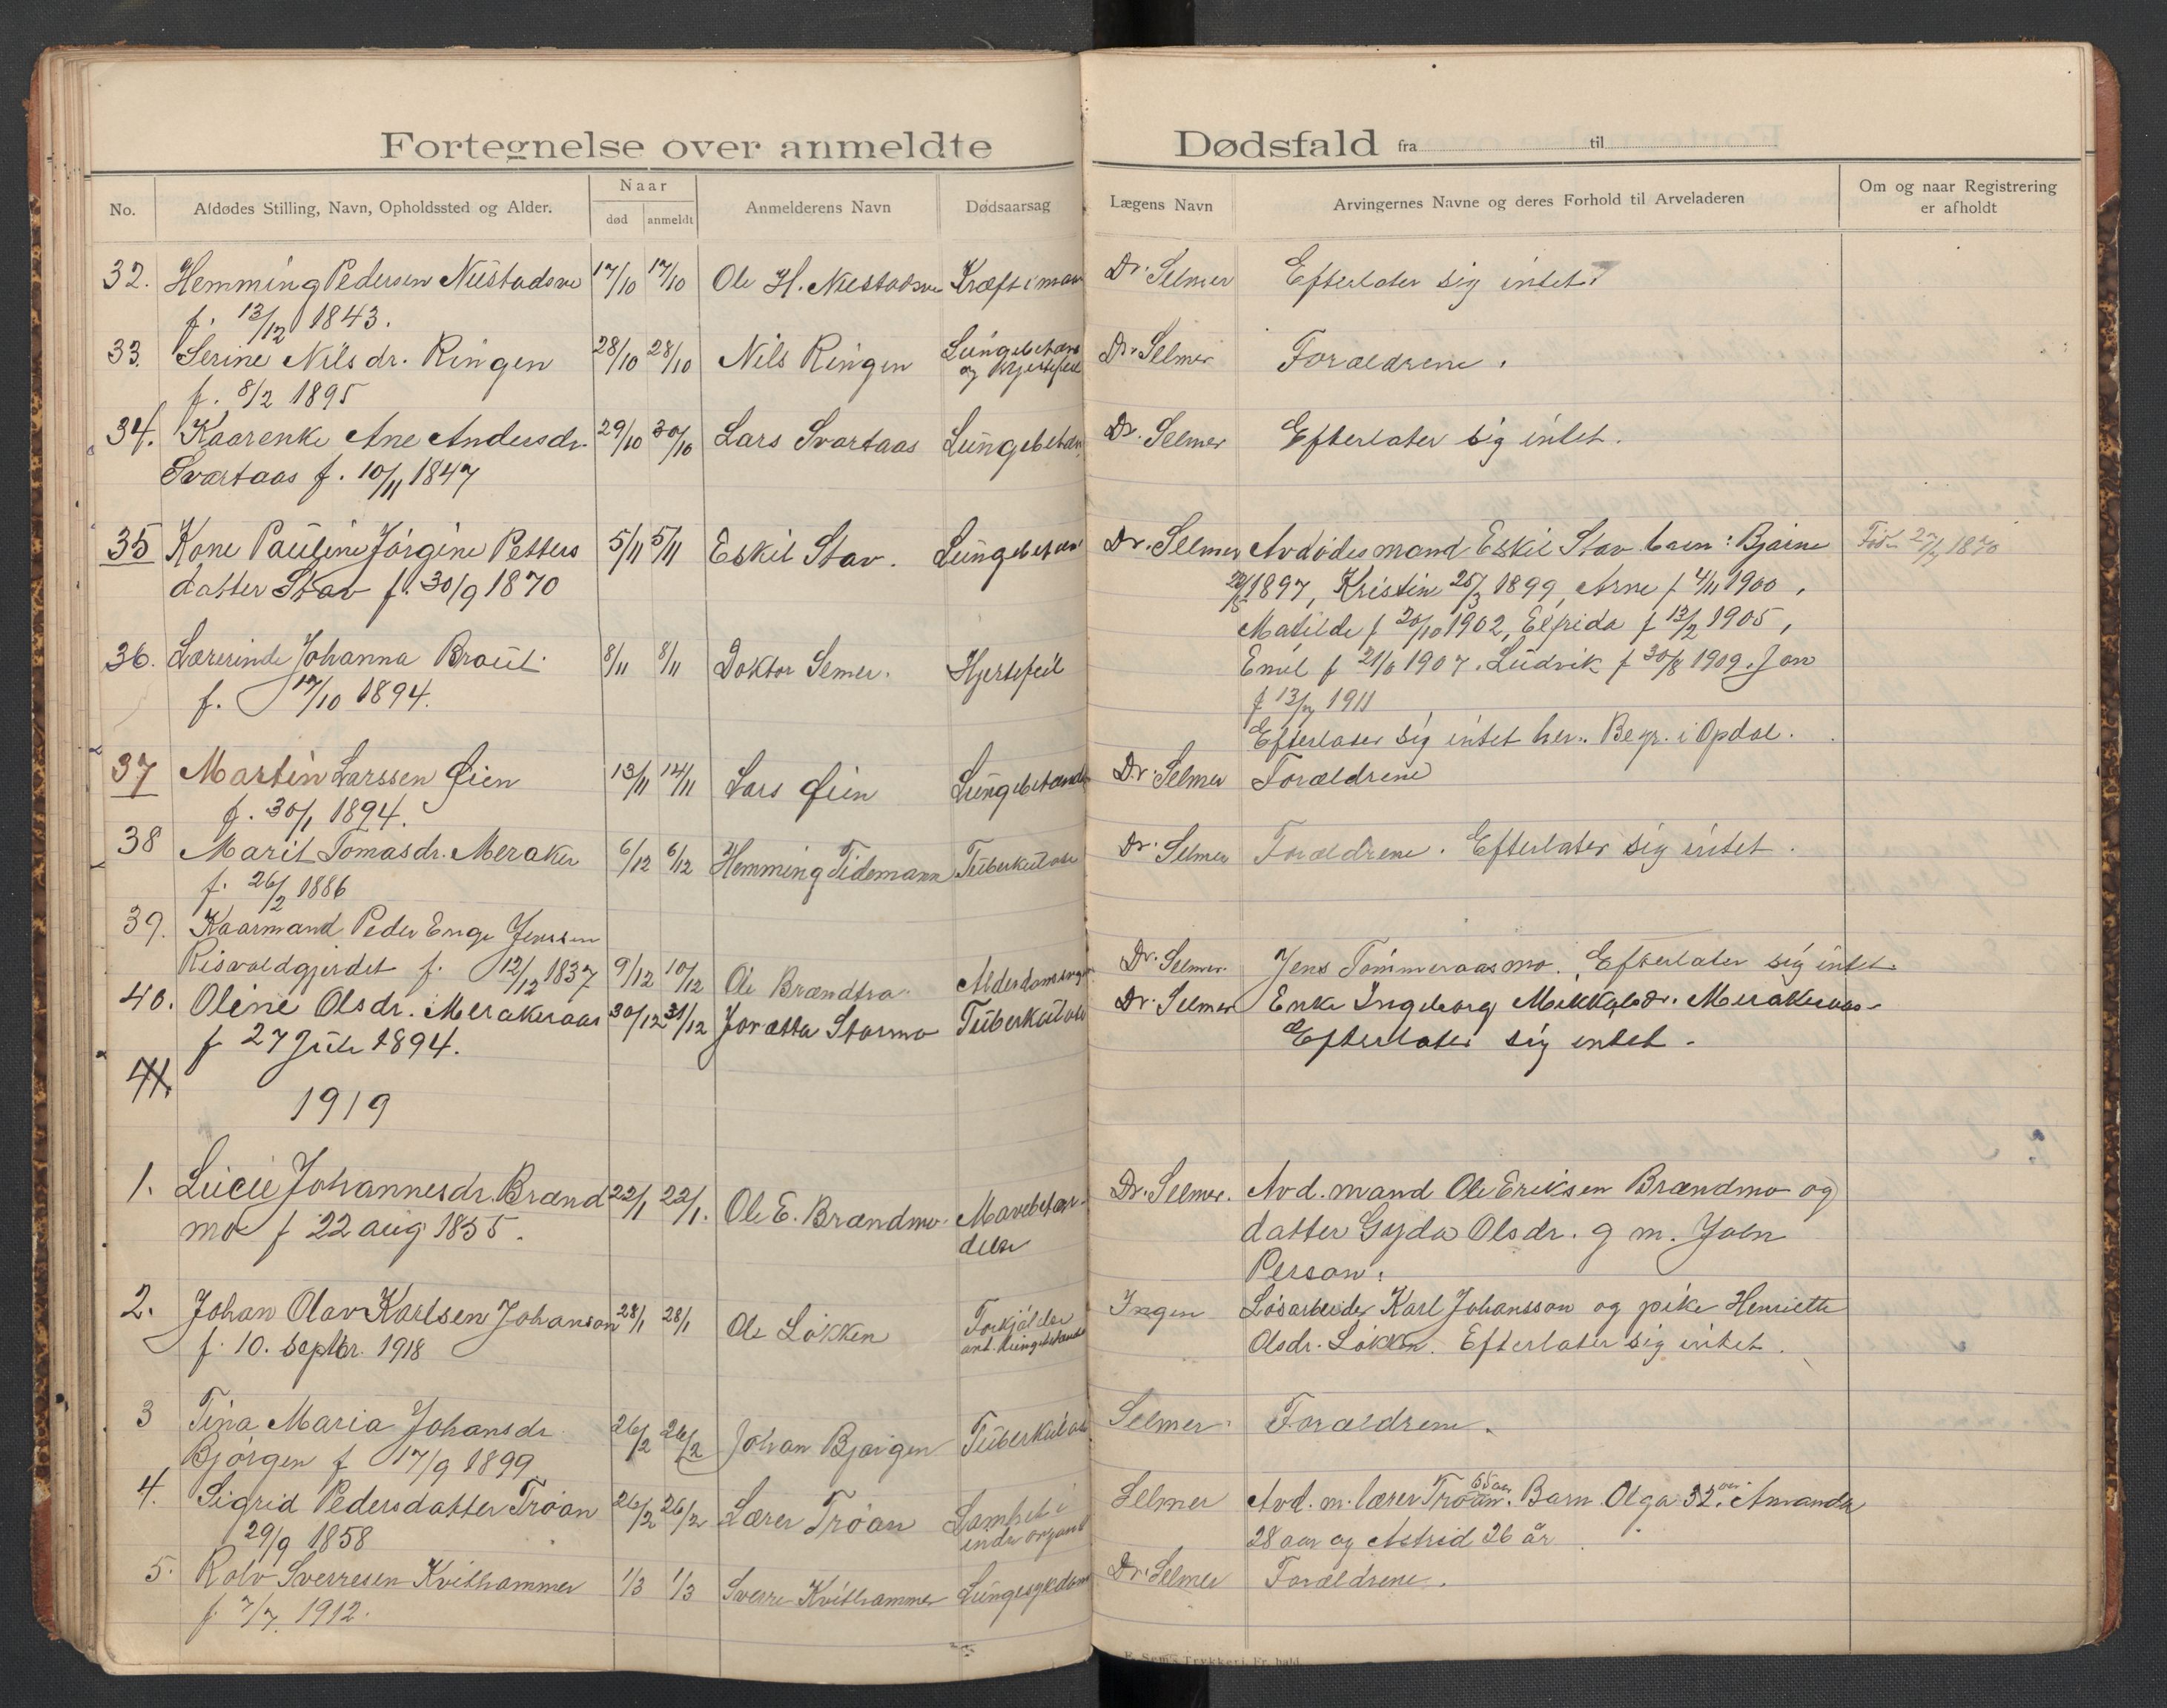 Fortegnelse over anmeldte Dødsfald fra til
No. Afdødes Stilling, Navn, Opholdssted og Alder. Naar død anmeldt Anmelderens Navn Dødsaarsag Lægens Navn Arvingernes Navne og deres Forhold til Arveladeren Om og naar Registrering er afholdt
32. Hemming Pedersen Nustadsve 17/10 17/10 Ole H. Nustadsve Kræft i mave Dr. Selmer Efterlater sig intet.
f. 13/12 1843.
33. Serine Nilsdr. Ringen 28/10 28/10 Nils Ringen Lungebetæn og Hjertefeil Dr. Selmer Foraeldrene.
f. 8/2 1895
34. Kaarenke Ane Andersdr. 29/10 30/10 Lars Svartaas Lungebetæn. Dr. Selmer Efterlater sig intet.
Svartaas f. 10/11 1847
35 Kone Pauline Jörgine Petters 5/11 5/11 Eskil Stav. Lungebetæn Dr. Selmer Avdödes mand Eskil Stav barn: Bjarne
datter Stav f. 30/9 1870 1897, Kristine 25/3 1899, Arne f 4/11 1900,
Matilde f 20/10 1902, Elfrida f 13/2 1905,
36. Lærerinde Johanna Braut. 8/11 8/11 Doktor Semer. Hjertefeil Emil f 1907. Ludvik f 30/8 1909. Jon
f. 17/10 1894. f 1911
Efterlater sig intet her. Begr. i Opdal.
37 Martin Larssen Øien 13/11 14/11 Lars Øien Lungebetænd Dr. Selmer Foraeldrene
f. 30/1 1894.
38 Marit Tomasdr. Meraker 6/12 6/12 Hemming Tidemann Tuberkulose Dr. Selmer Foraeldrene. Efterlater sig intet.
f. 26/2 1886
39. Kaarmand Peder Enge Jenssen
Risvoldgjerdet f. 12/12 1837 9/12 10/12 Ole Brændtra Dr. Selmer. Jens Tömmeraasmo. Efterlater sig intet.
40. Oline Olsdr. Merakeraas 30/12 31/12 Joratta Stormo Tuberkulose Dr. Selmer Enke Ingeborg Mikkalsdr. Merakeraas
f 27 Juli 1894. Efterlater sig intet.
41.
1919
1. Lucie Johannesdr. Brænd 22/1 22/1. Ole E. Brændmo. Mavebetæn- Dr. Selmer. Avd. mand Ole Eriksen Brændmo og
mo f 22 aug 1855. delse datter Gyda Olsdr. g m. John
Person.
2. Johan Olav Karlsen Johanson 28/1 28/1 Ole Løkken Forkjölelse ant. lungebetænd Ingen Lösarbeider Karl Johansson og pike Henriette
f. 10. Septbr. 1918 Olsdr. Løkken. Efterlater sig intet.
3 Tina Maria Johansdr 26/2 26/2 Johan Bjørgen Tuberkulose Selmer. Foraeldrene.
Bjørgen f 17/9 1899
4. Sigrid Pedersdatter Trøan 26/2 26/2 Lærer Trøan Lamhet i indre organer Selmer Avd. m. lærer Trøan 65 aar. Barn Olga 32 aar. Amanda
29/9 1858 28 aar og Astrid 26 år
5. Rolv Sverresen Kvithammer 1/3 1/3 Sverre Kvithammer Lungesykdom Dr. Selmer Foraeldrene.
f. 7/7. 1912.